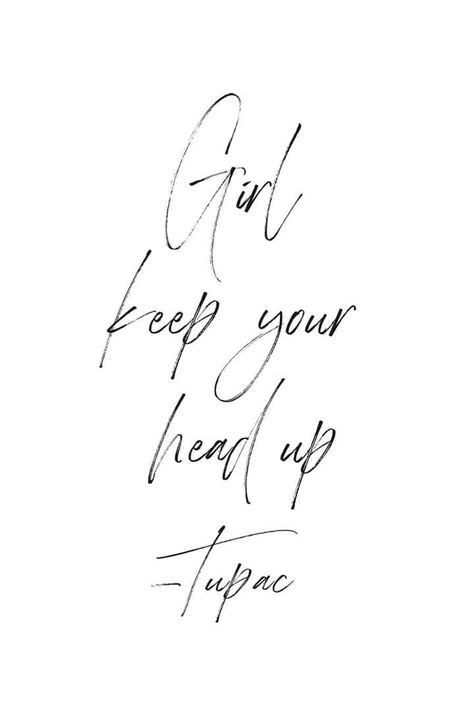 Girl
keep your
head up
-Tupac